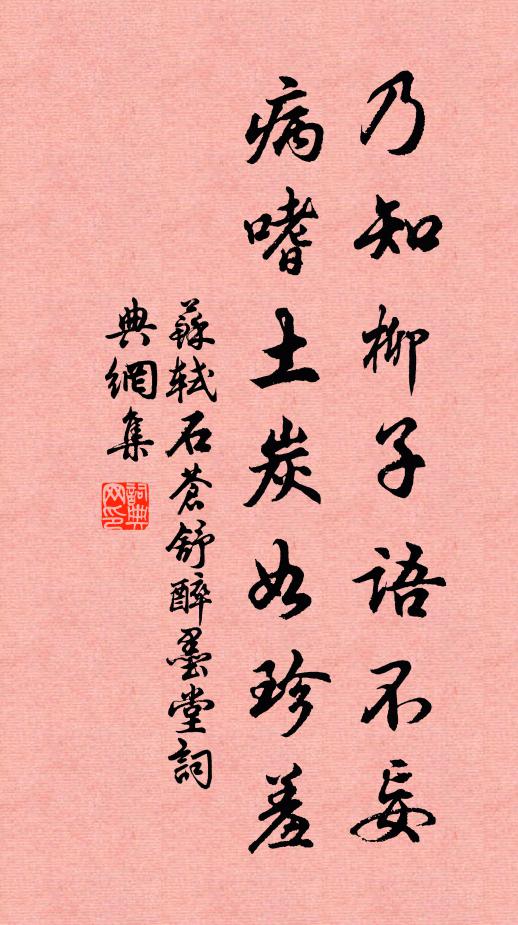 乃知柳子語不妄
病嗜土炭如珍羞
蘇軾石蒼舒醉墨堂詞
典網集
詞典
网印